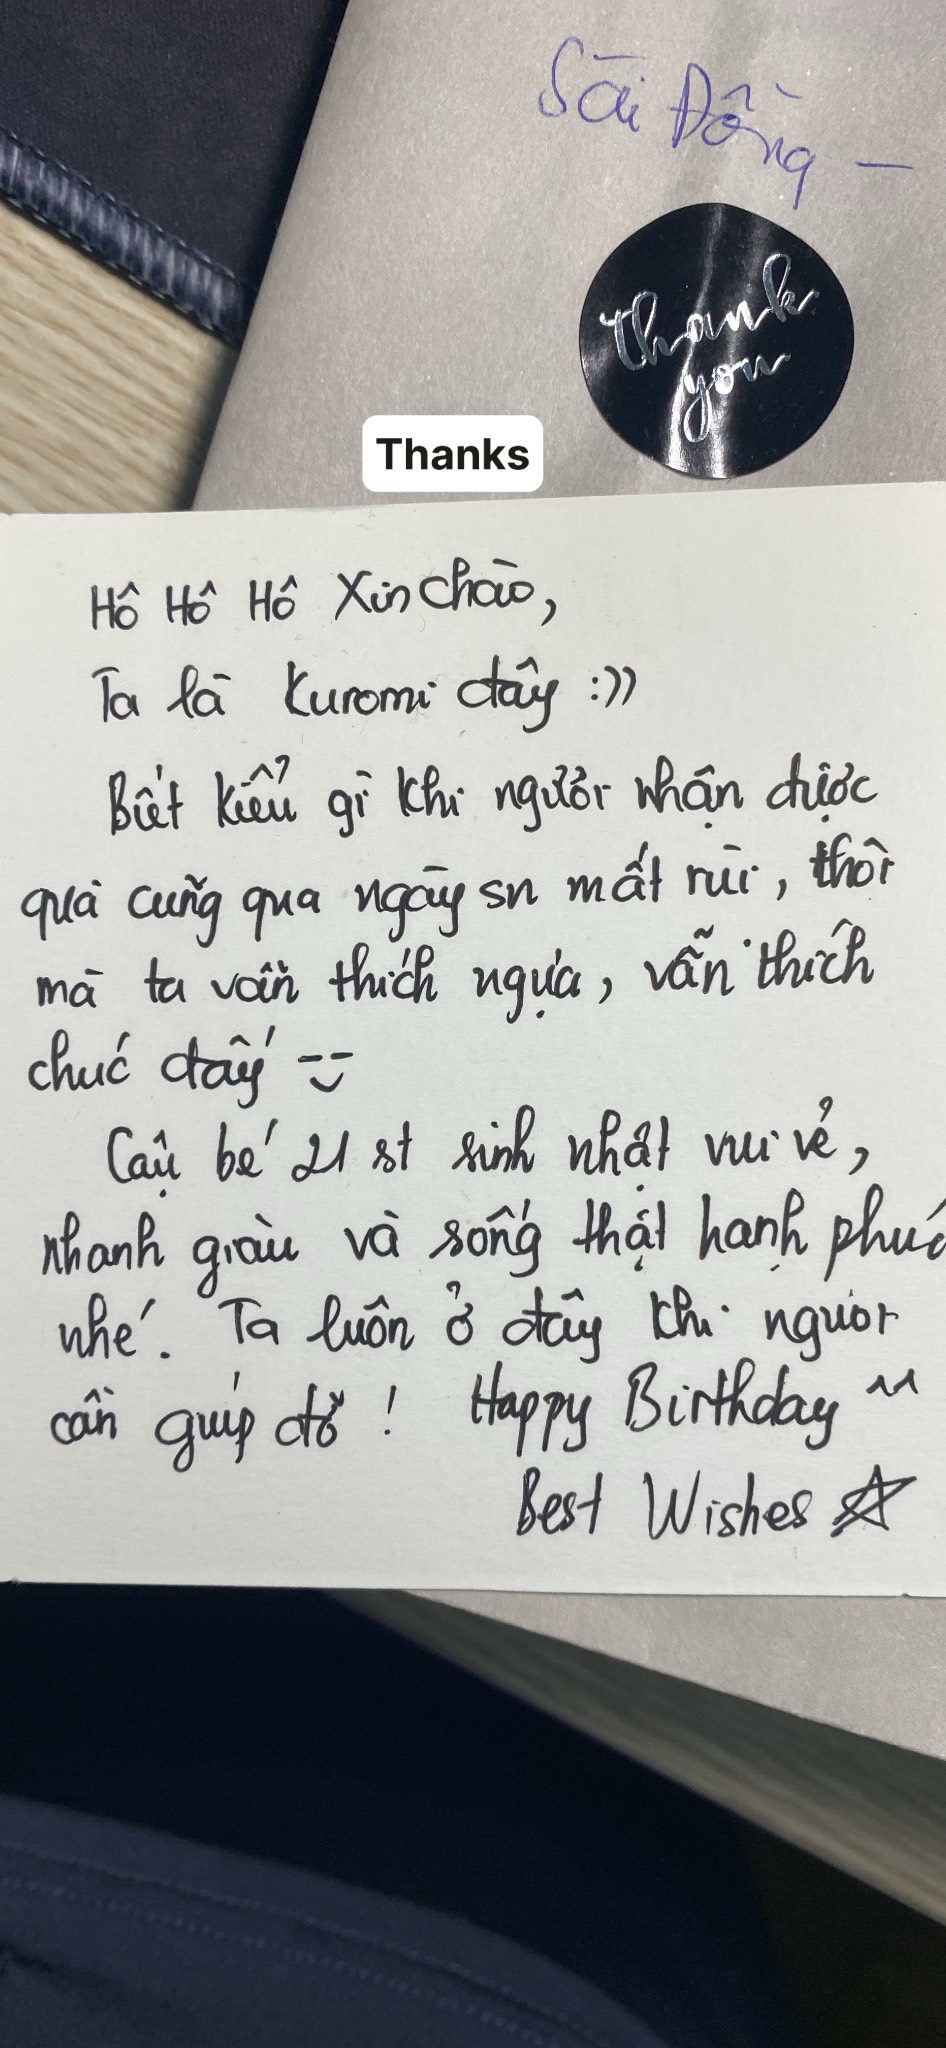 Sài Đồng –
thank
you
Thanks
Hô Hô Hô Xin chào,
Ta là Kuromi đây :))
Biết kiểu gì khi người nhận được
quà cũng qua ngày sn mất rùi, thôi
mà ta vẫn thích ngựa, vẫn thích
chúc đấy
Cậu bé 21 st sinh nhật vui vẻ,
nhanh giàu và sống thật hạnh phúc
nhé. Ta luôn ở đây khi ngươi
cần giúp đỡ! Happy Birthday ^^
Best Wishes ☆